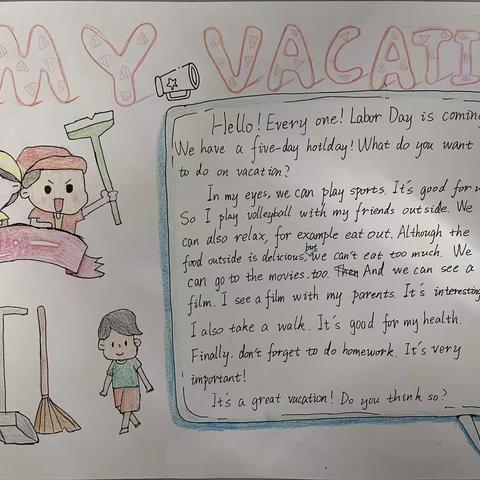 MY VACATI
Hello! Every one! Labor Day is coming
We have a five-day hoilday! What do you want
to do on vacation?
In my eyes, we can play sports. It's good for
So I play volleyboll with my friends outside. We
can also relax, for example eat out. Although the
food outside is delicious, but we can't eat too much. We
can go to the movies too. Then And we can see a
film. I see a film with my parents. It's interesting
I also take a walk. It's good for my health.
Finally. don't forget to do homework. It's very
important!
It's a great vacation! Do you think so?